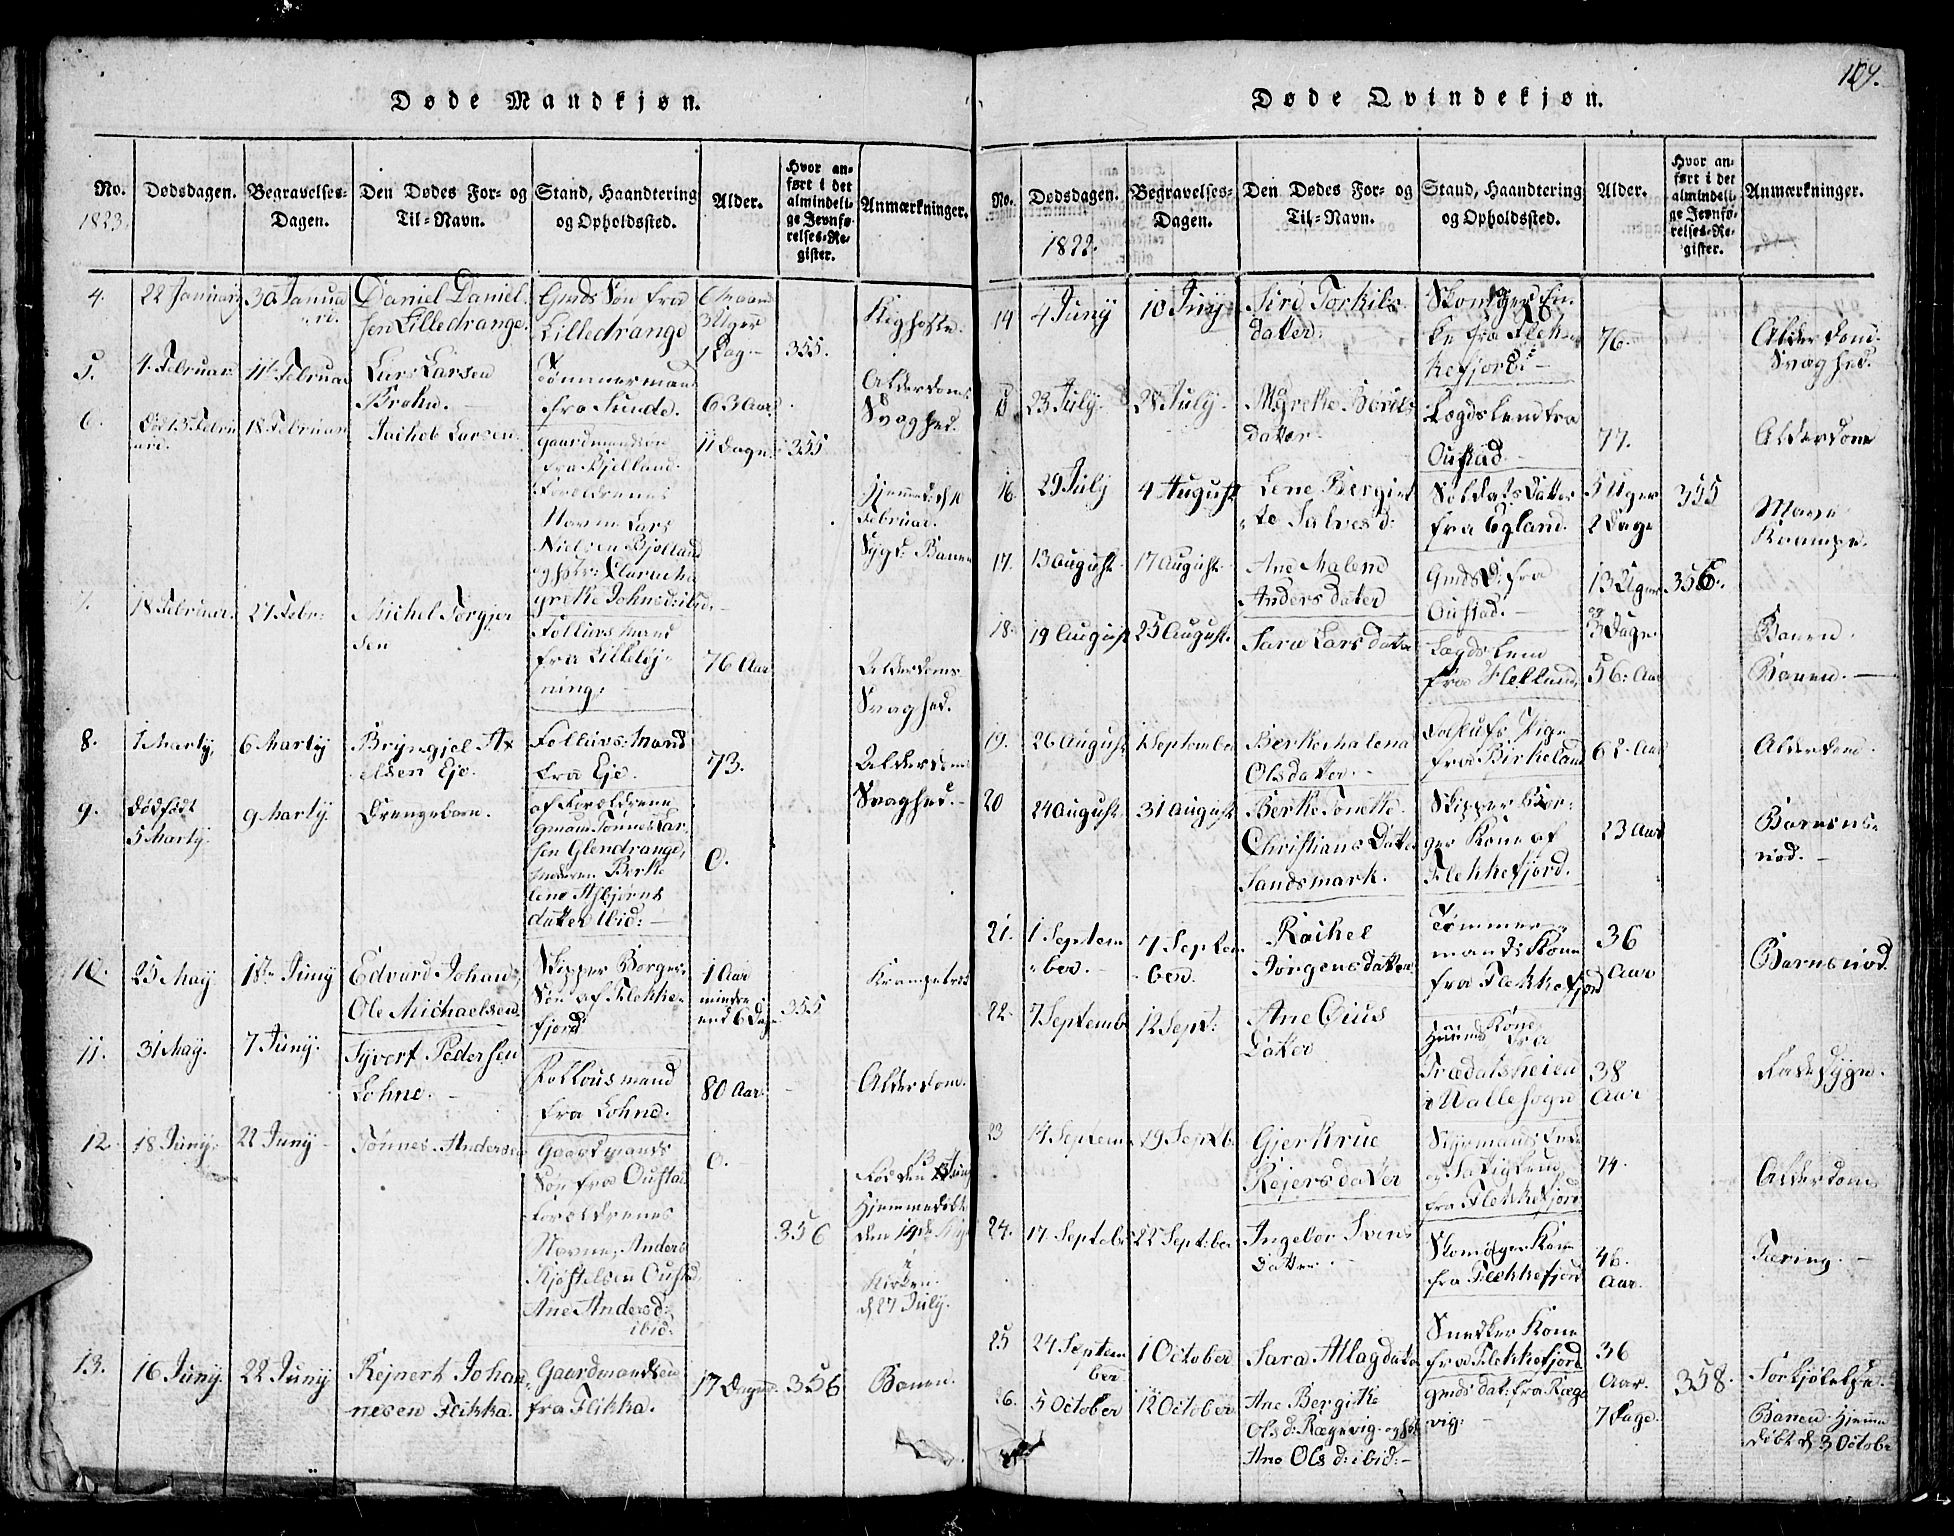 109.
Døde Mandkjøn.
No.
1823.
Dødsdagen.
Begravelses-
Dagen.
Den Dødes For- og
Til-Navn.
Stand, Haandtering
og Opholdssted.
Alder.
Hvor an-
ført i det
almindeli-
ge Jevnfø-
relses-Re-
gister.
Anmærkninger.
4.
22 January
30 Janua
ri.
Daniel Daniel-
sen Lilledrange.
Gmds Søn fra
Lilledrange
6 Maan
3 Uger
1 Dag
355.
Kighoste.
5.
4. Februar
11te Februar
Lars Larsen
Brohn.
Tømmermand
fra Sunde.
63 Aar
Alderdoms
Svaghed.
6.
13 Febru
ari.
18 Februar
Jachob Larsen
Gaardmandsøn
fra Bjelland.
Forældrenes
Navne Lars
Nielsen Bjelland
11 Dage
355
Februar.
Sygd: Barnen
7.
18 Februar.
27 Febr:
Michel Torgier
sen
Follausmand
fra Lilleløj-
ning.
76 Aar
Alderdoms
Svaghed.
8.
1 Marty,
6 Marty
Bryngjel Ax
elsen Eje.
Follaus Mand
fra Eje.
73.
Alderdoms
Svaghed.
9.
Dødfødt
5 Marty.
9 Marty.
Drengebarn.
af Forældrene
Gmam Tønnes Lar
sen Glendrange,
Moderen Berthe
lene Asbjørns
datter ibid:
0.
10.
25 May
1ste Juny
Edvard Johan
Ole Michaelsen.
Skipper Borger-
Søn af Flekke-
fjord
1 Aar
mindre
end 6 Dage
355
Krampetræk
11.
31 May.
7 Juny.
Syvert Pedersen
Lohne.
Follousmand
fra Lohne.
80 Aar.
Alderdom.
12
18 Juny.
22 Juny
Tønnes Andersen
Gaardmands
Søn fra Oustad
Forældrenes
Navne, Anders
Kjøstelsen Oustad,
Ane Andersd:
ibid:
0.
356
Fød den 13 Juny
Hjemmedøbt
den 14de
i
Kirken
d 27 July.
13.
16 Juny.
22 Juny
Rejnert Johan
nesen Flikka.
Gaardmandsøn
fra Flikka.
17 Dage.
356
Barnen.
Døde Qvindekjøn.
No.
Dødsdagen.
1822.
Begravelses-
Dagen.
Den Dødes For- og
Til-Navn.
Stand, Haandtering
og Opholdssted.
Alder.
Hvor an-
ført i det
almindeli-
ge Jevnfø-
relses-Re-
gister.
Anmærkninger.
14
4 Juny
10 Juny
Siri Torkils
dater.
Skomager En-
ke fra Flek-
kefjord.
76.
Alderdoms
Svaghed.
15
23 July
28 July.
Lægdslem fra
Oustad
77.
Alderdom
16.
29 July
4 August
Lene Bergit
te Salvesd:
Soldats Datter
fra Egland.
5 Uger
2 Dage
355
Mave
Krampe.
17.
13 August
17 August
Ane Malene
Andersdater
Gmds D: fra
Oustad.
13 Uger
og
3 Dage.
356.
Barnen.
18.
19 August
25 August.
Sara Larsdater
Lægdslem
fra Helland,
56: Aar
Barnen.
19.
26 August
1 September
Berthe Malena
Olsdatter.
Pige
fra Birkeland
62 Aar
Alderdom.
20
24 August
31 August
Berthe Tonette
Christians Datter
Sandsmark.
Skipper Bor-
ger Kone af
Flekkefjord.
23 Aar
Barnsnø-
nød.
21.
1 Septem
ber.
7 Septem
ber.
Rachel
Jørgensdatter
Tømmer
mands Kone
fra Flekkefjord
36
Aar
Barnsnød.
22.
7 Septemb
12 Sept:
Ane Gius
Dater
Kone
fra
Trædalsheien
i Walle Sogn
38
Aar
Radesyge.
23
14 Septem
19 Septb.
Gjertrue
Rejersdater
Styrmands Enke
fra Flekkefjord
74.
Alderdom
24.
17 Septebe
22 Septber
Ingebor Svens
Datter.
Skomager Kone
fra Flekkefjord
46.
Aar.
Tæring.
25
24 Septem
ber
1 October
Sara Atlagdater
Snedker Kone
fra Flekkefjord
36
Aar.
Forkjølelse.
26.
5 October
12 October
Ane Bergithe
Olsd: Rægevig
Ane Olsd: ibid:
gmds dat: fra Ræge
vig:
7 Dage.
358.
Barnen. Hjemme
døbt d 3 Octobe